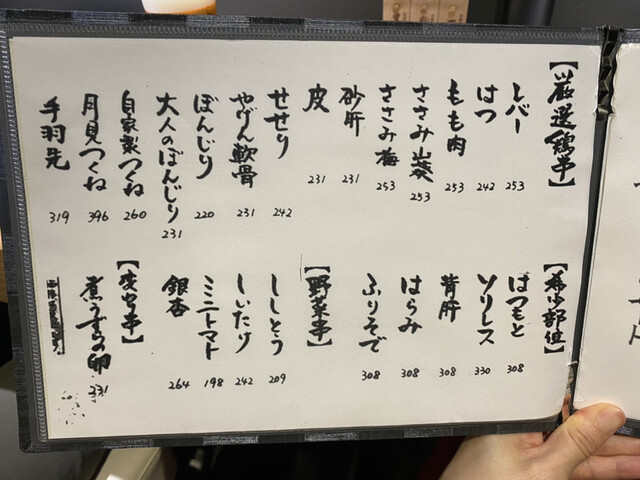 【厳選鶏串】
レバー 253
はつ 242
もも肉 253
ささみ山葵 253
ささみ梅 253
砂肝 231
皮 231
せせり 242
やげん軟骨 231
ぼんじり 220
大人のぼんじり 231
自家製つくね 260
月見つくね 396
手羽先 319
【希少部位】
はつもと 308
ソリレス 330
背肝 308
はらみ 308
ふりそで 308
【野菜串】
ししとう 209
しいたけ 242
ミニトマト 198
銀杏 264
【変り串】
煮うずらの卵 231